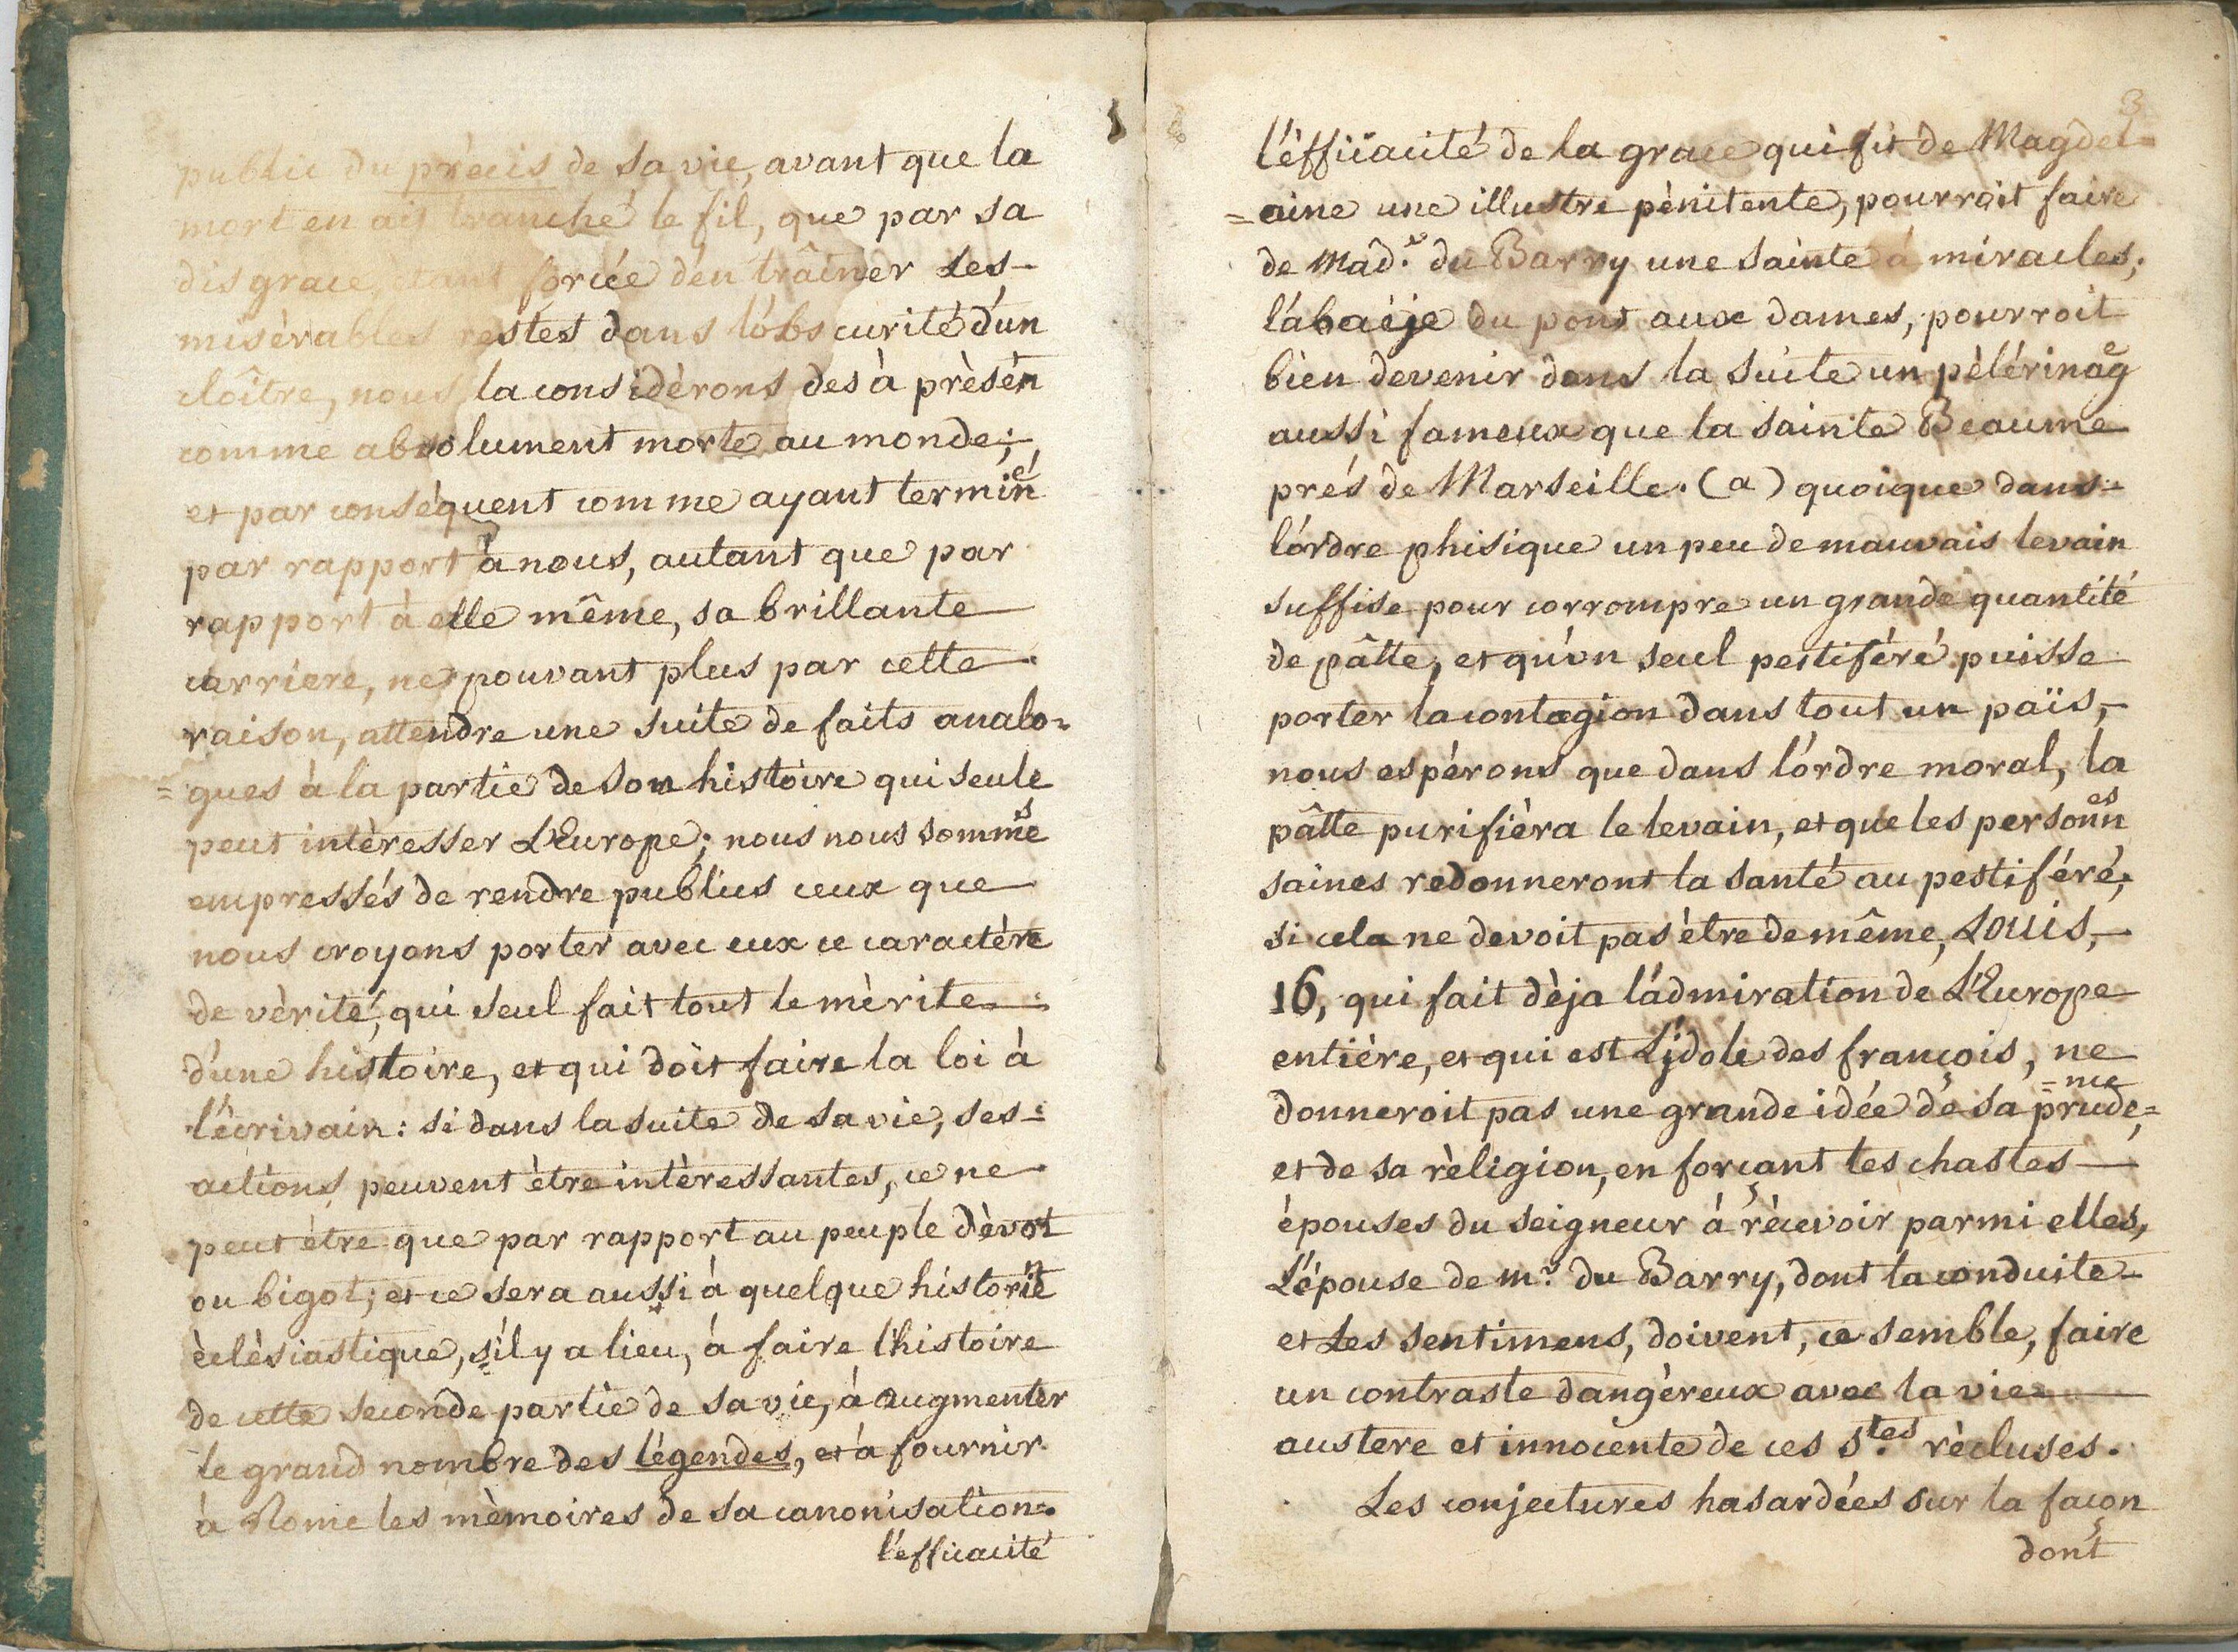 public du prècis de sa vie, avant que la
mort en ait tranché le fil, que par sa
disgrace, étant forcée d'en traîner les
misèrables restes dans l'obscurité d'un
cloître, nous la considèrons des à prèsèn
comme absolument morte au monde;
et par consèquent comme ayant terminé
par rapport à nous, autant que par
rapport à elle même, sa brillante
carriere, ne pouvant plus par cette
raison, attendre une suite de faits analo=
=gues à la partie de son histoire qui seule
peut intèresser L'Europe; nous nous sommes
empressés de rendre publics ceux que
nous croyons porter avec eux ce caractère
de vèrité, qui seul fait tout le mèrite
d'une histoire, et qui doit faire la loi à
l'ècrivain: si dans la suite de sa vie, ses
actions peuvent ètre intèressantes, ce ne
peut ètre que par rapport au peuple dèvot
ou bigot; et ce sera aussi à quelque historien
èclèsiastique, s'il y a lieu, à faire l'histoire
de cette seconde partie de sa vie, à augmenter
le grand nombre des légendes, et à fournir
à Rome les mèmoires de sa canonisation.
l'efficacité
3
l'èfficacité de la grace qui fit de Magdel=
=aine une illustre pènitente, pourroit faire
de Mad.e du Barry une sainte à miracles;
l'abaéje du pont aux dames, pourroit
bien devenir dans la suite un pèlérinage
aussi fameux que la sainte Beaume
prés de Marseille. (a) quoique dans
l'ordre phisique un peu de mauvais levain
suffise pour corrompre un grande quantité
de pâtte, et qu'un seul pestiféré puisse
porter la contagion dans tout un païs,
nous espérons que dans l'ordre moral, la
pâtte purifièra le levain, et que les personnes
saines redonneront la santé au pestiféré;
si cela ne devoit pas ètre de même, Louis,
16, qui fait dèja l'admiration de L'Europe
entière, et qui est L'jdole des françois, ne
donneroit pas une grande idée de sa prude=
=nce,
et de sa rèligion, en forçant les chastes
épouses du seigneur à rècevoir parmi elles,
L'épouse de m.r du Barry, dont la conduite
et Les sentimens, doivent, ce semble, faire
un contraste dangèreux avec la vie
austere et innocente de ces s.tes rècluses.
Les conjectures hasardées sur la façon
dont